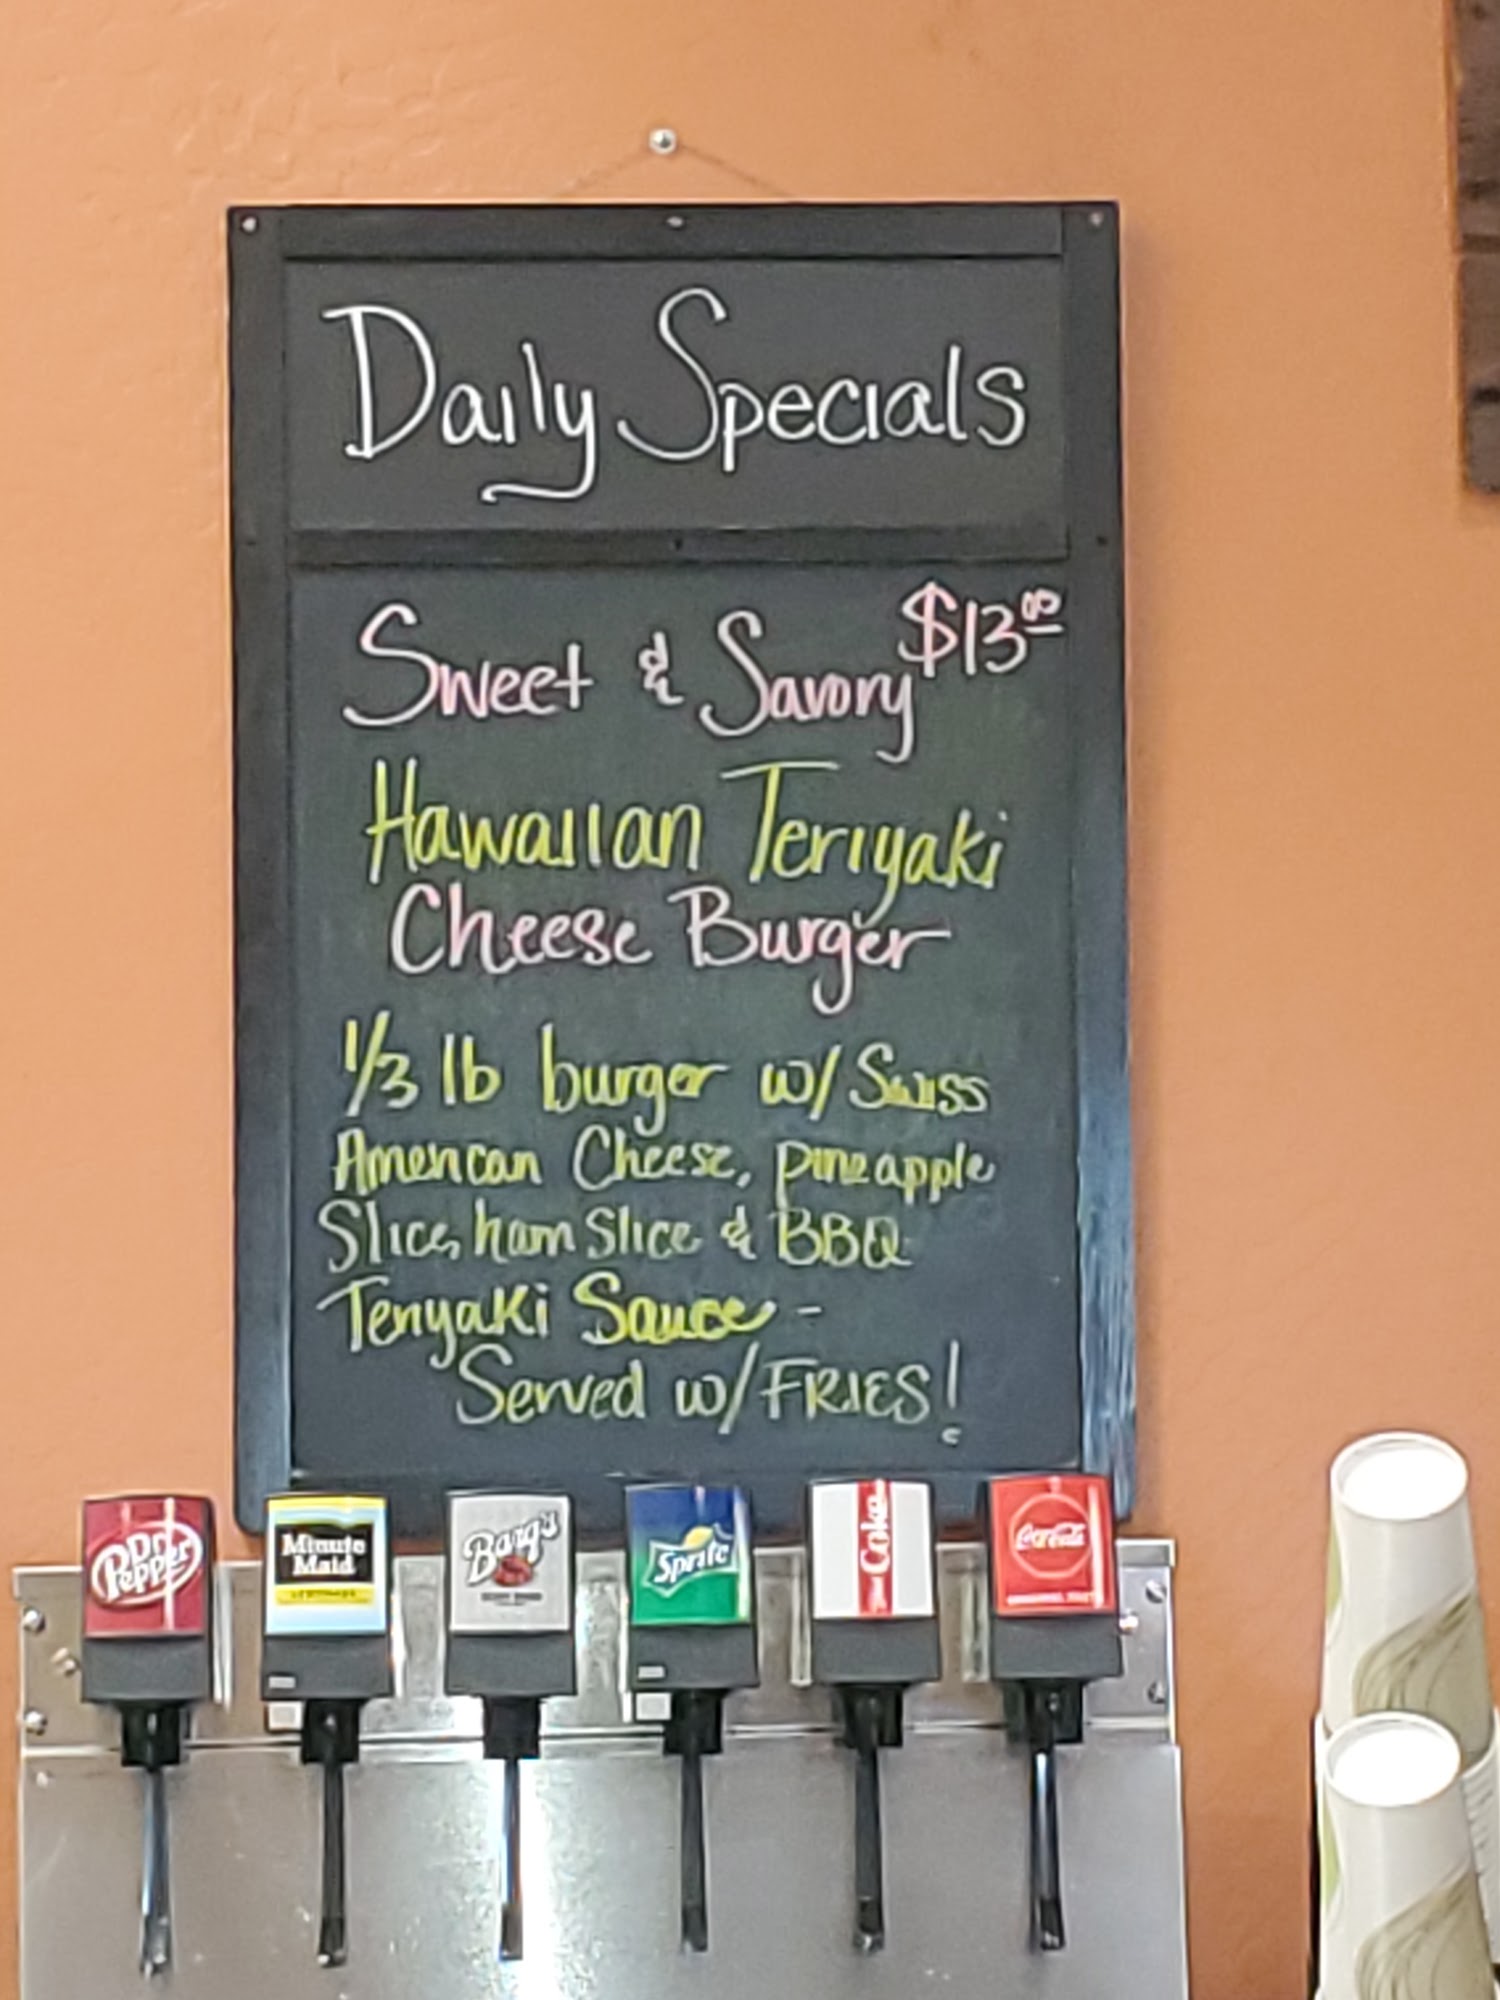 Daily Specials
$13.00
Sweet & Savory
Hawaiian Teriyaki
Cheese Burger
1/3 lb burger w/ Swiss
American Cheese, pineapple
Slice, ham slice & BBQ
Teriyaki Sauce -
Served w/ FRIES!
Dr Pepper
Minute Maid
LEMONADE
Barq's
Sprite
Diet Coke
Coca-Cola